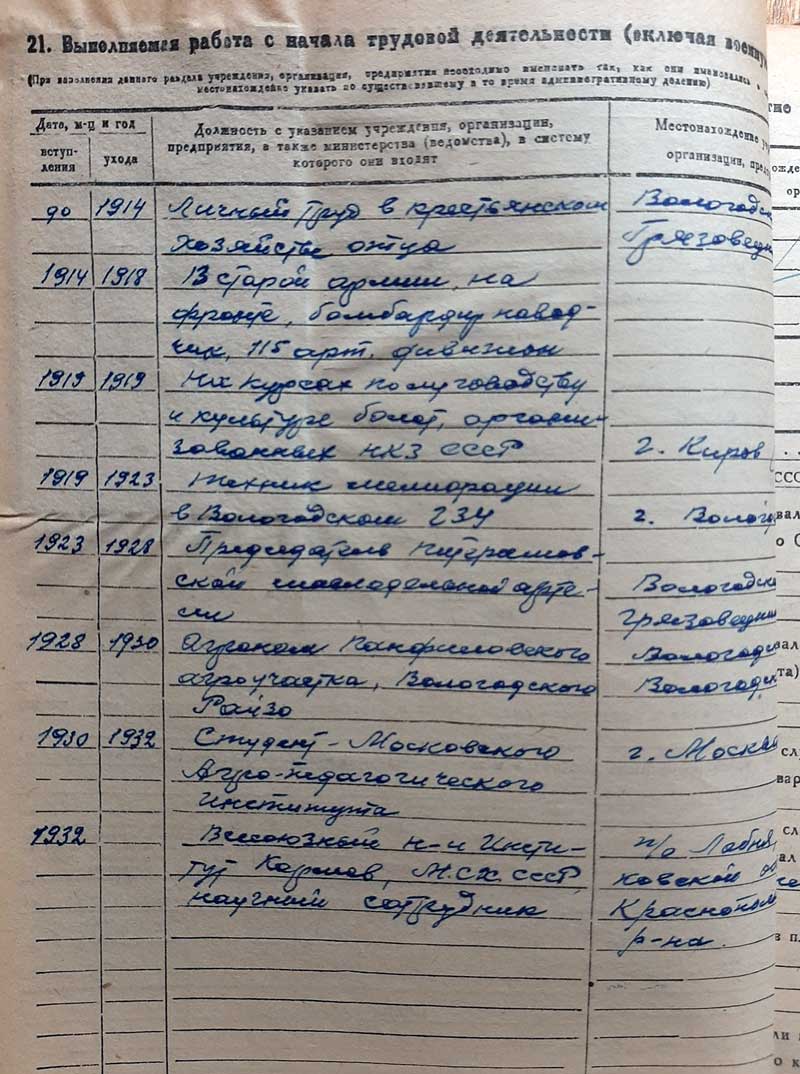 21. Выполняемая работа с начала трудовой деятельности (включая военну
(При заполнении данного раздела учреждения, организации, предприятия необходимо именовать так, как они именовались в
местонахождение указать по существовавшему в то время административному делению)
Дата, м-ц и год
вступ-
ления
ухода
Должность с указанием учреждения, организации,
предприятия, а также министерства (ведомства), в систему
которого они входят
Местонахождение
организации,
до 1914 Личный труд в крестьянском Вологодск
хозяйстве отца Грязовецк
1914 1918 В старой армии, на
фронте, бомбардир навод-
чик, 115 арт. дивизион
1919 1919 На курсах по луговодству
и культуре болот, органи-
зованных НКЗ СССР г. Киров
1919 1923 Техник мелиорации
в Вологодском ГЗУ г. Волог
1923 1928 Председатель
ской маслодельной арте- Вологодск
ли Грязовецк
1928 1930 Агроном Панфиловского Вологодск
агроучастка, Вологодского Вологодск
Райзо
1930 1932 Студент - Московского г. Москва
Агро-педагогического
Института
1932 Всесоюзный н-и Инсти- п/о Лобня
тут Кормов, М.С.Х. СССР, ковской
научный сотрудник Краснопол
р-на.